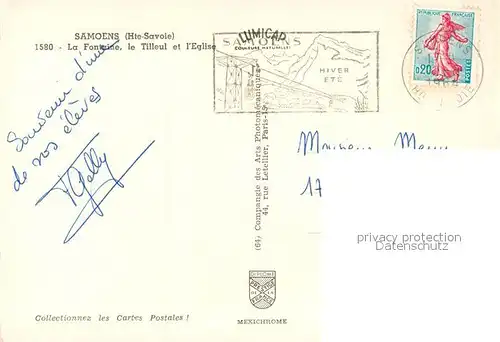 SAMOENS (Hte-Savoie)
1580 - La Fontaine, le Tilleul et l'Eglise
LUMICAP
COULEURS NATURELLES
SAMOENS
HIVER
ETE
0,20
SAMOENS
1964
Souvenir d'un
de nos élèves
Monsieur
17
(64) Compagnie des Arts Photomécaniques
44, rue Letellier, Paris-15e
privacy protection
Datenschutz
DIPLOME
PRESTIGE
DE LA
FRANCE
Collectionnez les Cartes Postales !
MEXICHROME